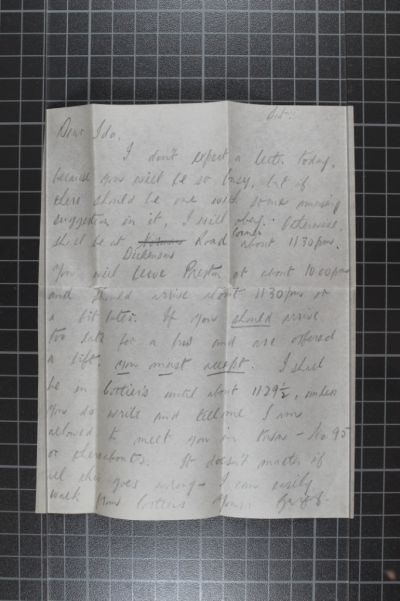 Sat.
Dear Ida,
I don't expect a letter today,
because you will be so busy, but if
there should be one with some amusing
suggestion in it, I will obey. Otherwise,
shall be at Road corner about 11.30pm.
Dickenson
You will leave Preston at about 10.00pm
and should arrive about 11.30pm or
a bit later. If you should arrive
too late for a bus and are offered
a lift, you must accept. I shall
be in until about 11.29½, unless
you do write and tell me I am
allowed to meet you in town - No 95
or thereabouts. It doesn't matter if
all this goes wrong - I can easily
walk from